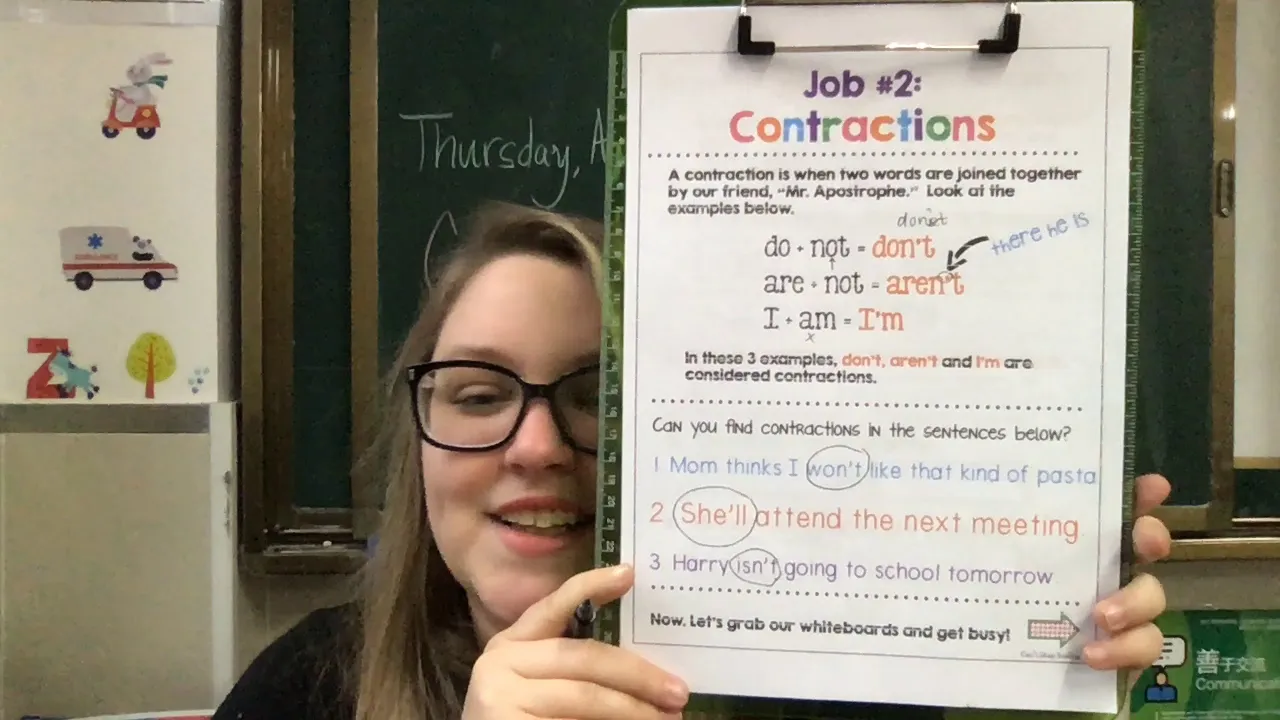 Thursday, A
Job #2:
Contractions
A contraction is when two words are joined together
by our friend, "Mr. Apostrophe." Look at the
examples below.
do + not = don't
there he is
are + not = aren't
I + am = I'm
x
In these 3 examples, don't, aren't and I'm are
considered contractions.
Can you find contractions in the sentences below?
1 Mom thinks I won't like that kind of pasta
2 She'll attend the next meeting
3 Harry isn't going to school tomorrow
Now. Let's grab our whiteboards and get busy!
AMBULANCE
Z
善于交流
Communicat